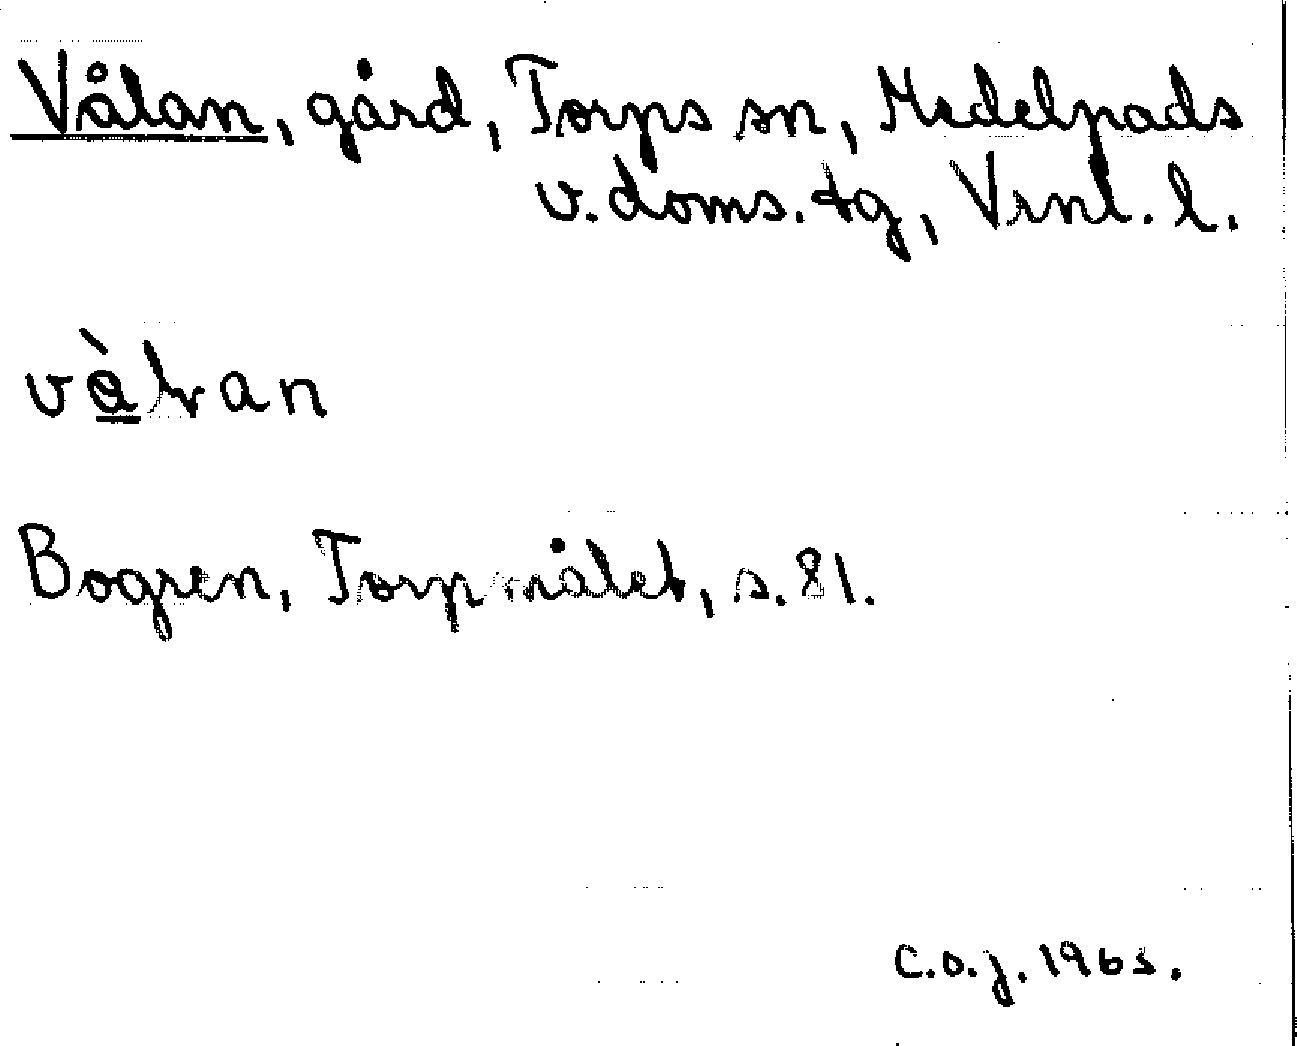 Vålan, gård, Torps sn, Medelpads
v. doms. tg, Vrnl. l.
Bogren, Torpmålet, s. 81.
C.O.J. 1965.